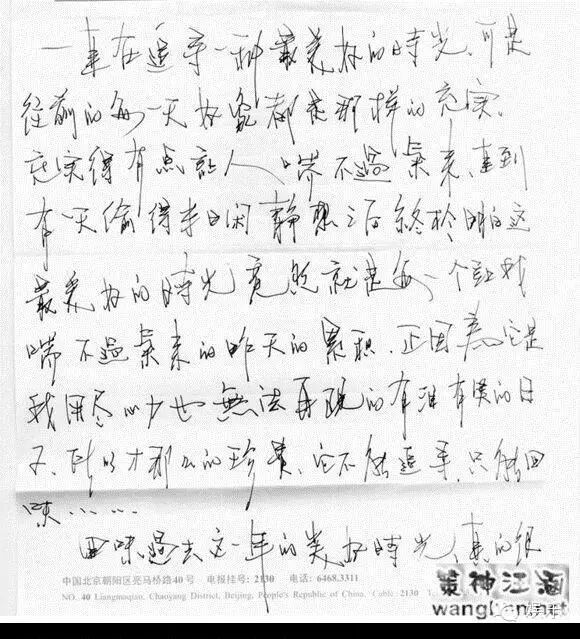 一直在追寻一种最美好的時光、可是
往前的每一天好像都是那样的充实、
充实得有点让人 喘不過氣来、直到
有一天偷得半日闲 静想之后 終於明白 这
最美好的時光竟然就是每一个让我
喘不過氣来的昨天的累积、正因為它是
我用尽心力也無法再現的有泪有笑的日
子、所以才那么的珍貴、它不能追寻、只能回
味……
回味過去这一年的美好時光、真的很
中国北京朝阳区亮马桥路40号 电报挂号：2130 电话：6468.3311
NO. 40 Liangmaqiao, Chaoyang District, Beijing, People's Republic of China. Cable: 2130
策神江涵
wanglihan.net